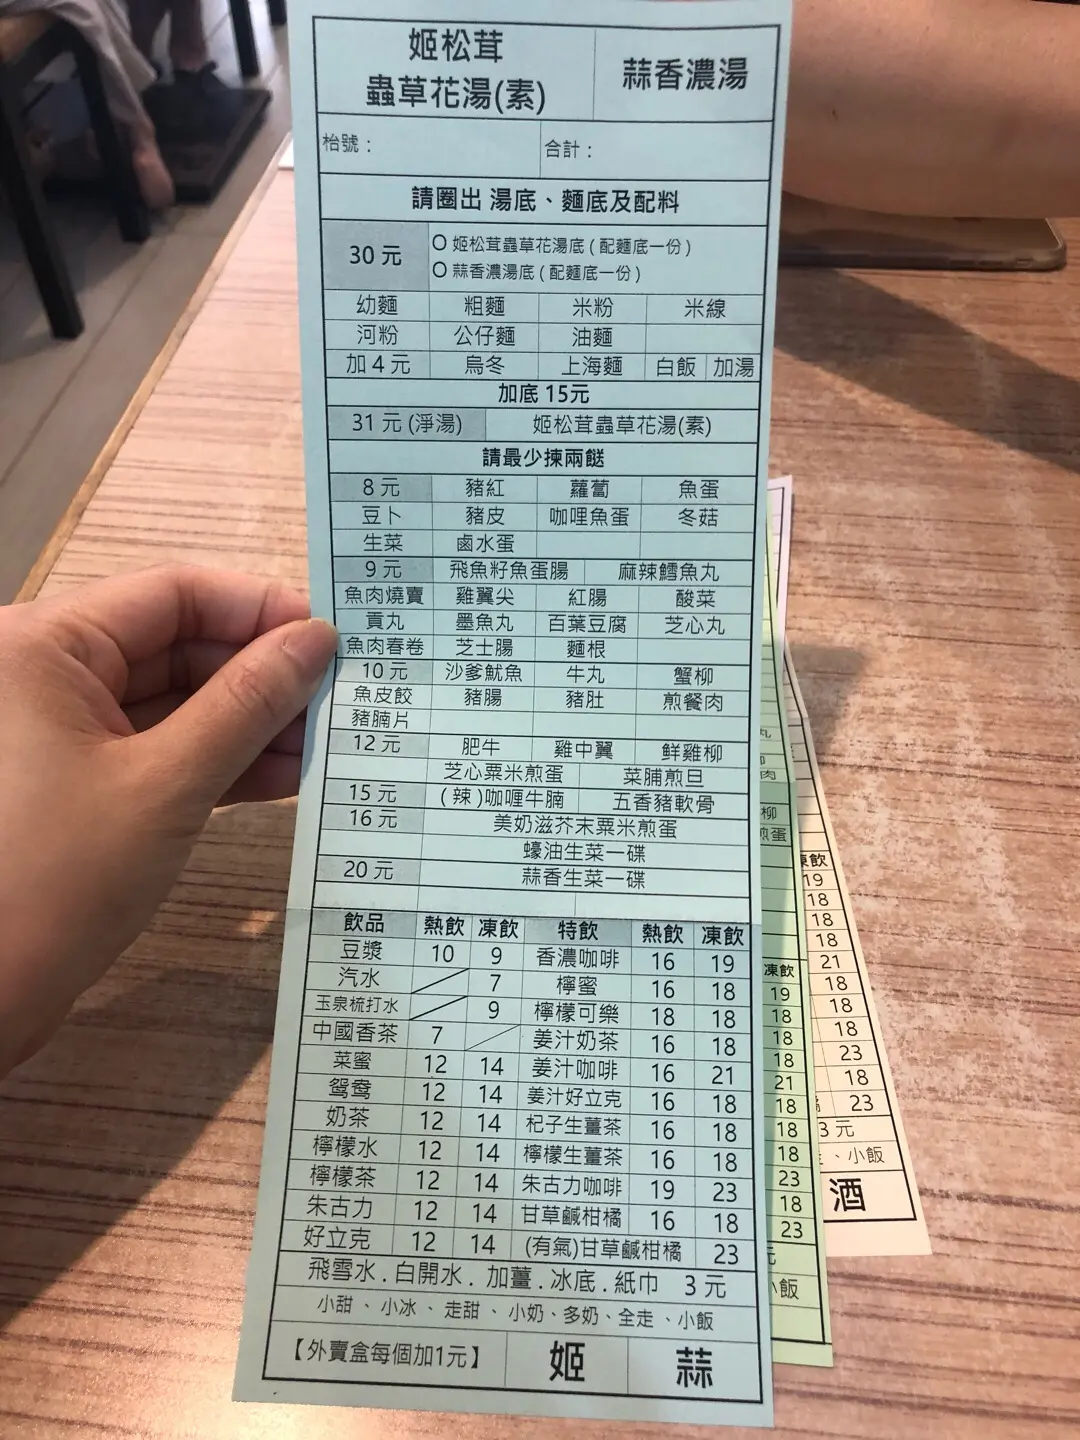 姬松茸
蟲草花湯(素)
蒜香濃湯
枱號：
合計：
請圈出 湯底、麵底及配料
30 元
O 姬松茸蟲草花湯底 ( 配麵底一份 )
O 蒜香濃湯底 ( 配麵底一份 )
幼麵 粗麵 米粉 米線
河粉 公仔麵 油麵
加 4 元 烏冬 上海麵 白飯 加湯
加底 15元
31 元 (淨湯) 姬松茸蟲草花湯(素)
請最少揀兩餸
8 元 豬紅 蘿蔔 魚蛋
豆卜 豬皮 咖哩魚蛋 冬菇
生菜 鹵水蛋
9 元 飛魚籽魚蛋腸 麻辣鱈魚丸
魚肉燒賣 雞翼尖 紅腸 酸菜
貢丸 墨魚丸 百葉豆腐 芝心丸
魚肉春卷 芝士腸 麵根
10 元 沙爹魷魚 牛丸 蟹柳
魚皮餃 豬腸 豬肚 煎餐肉
豬腩片
12 元 肥牛 雞中翼 鮮雞柳
芝心粟米煎蛋 菜脯煎旦
15 元 ( 辣 )咖喱牛腩 五香豬軟骨
16 元 美奶滋芥末粟米煎蛋
蠔油生菜一碟
20 元 蒜香生菜一碟
飲品 熱飲 凍飲 特飲 熱飲 凍飲
豆漿 10 9 香濃咖啡 16 19
汽水 7 檸蜜 16 18
玉泉梳打水 9 檸檬可樂 18 18
中國香茶 7 姜汁奶茶 16 18
菜蜜 12 14 姜汁咖啡 16 21
鴛鴦 12 14 姜汁好立克 16 18
奶茶 12 14 杞子生薑茶 16 18
檸檬水 12 14 檸檬生薑茶 16 18
檸檬茶 12 14 朱古力咖啡 19 23
朱古力 12 14 甘草鹹柑橘 16 18
好立克 12 14 (有氣)甘草鹹柑橘 23
飛雪水 . 白開水 . 加薑 . 冰底 . 紙巾 3 元
小甜 、 小冰 、 走甜 、 小奶、多奶、全走 、小飯
【外賣盒每個加1元】 姬 蒜
丸
肉
柳
煎蛋
凍飲
19
18
18
18
21
18
18
18
23
18
23
元
小飯
凍飲
19
18
18
18
21
18
18
18
23
18
23
3 元
、小飯
酒